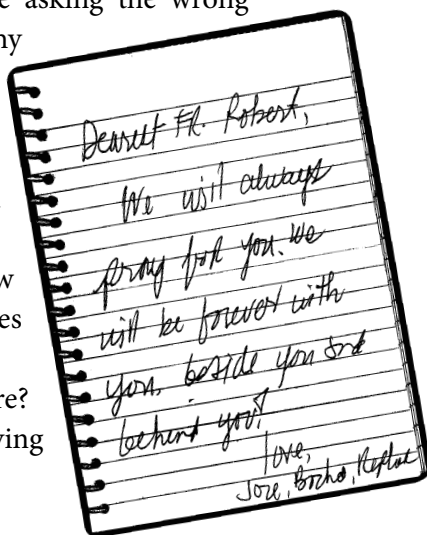 asking the wrong
Dearest FR. Robert,
We will always
pray for you. We
will be forever with
you, beside you and
behind you!
love,
Jose,